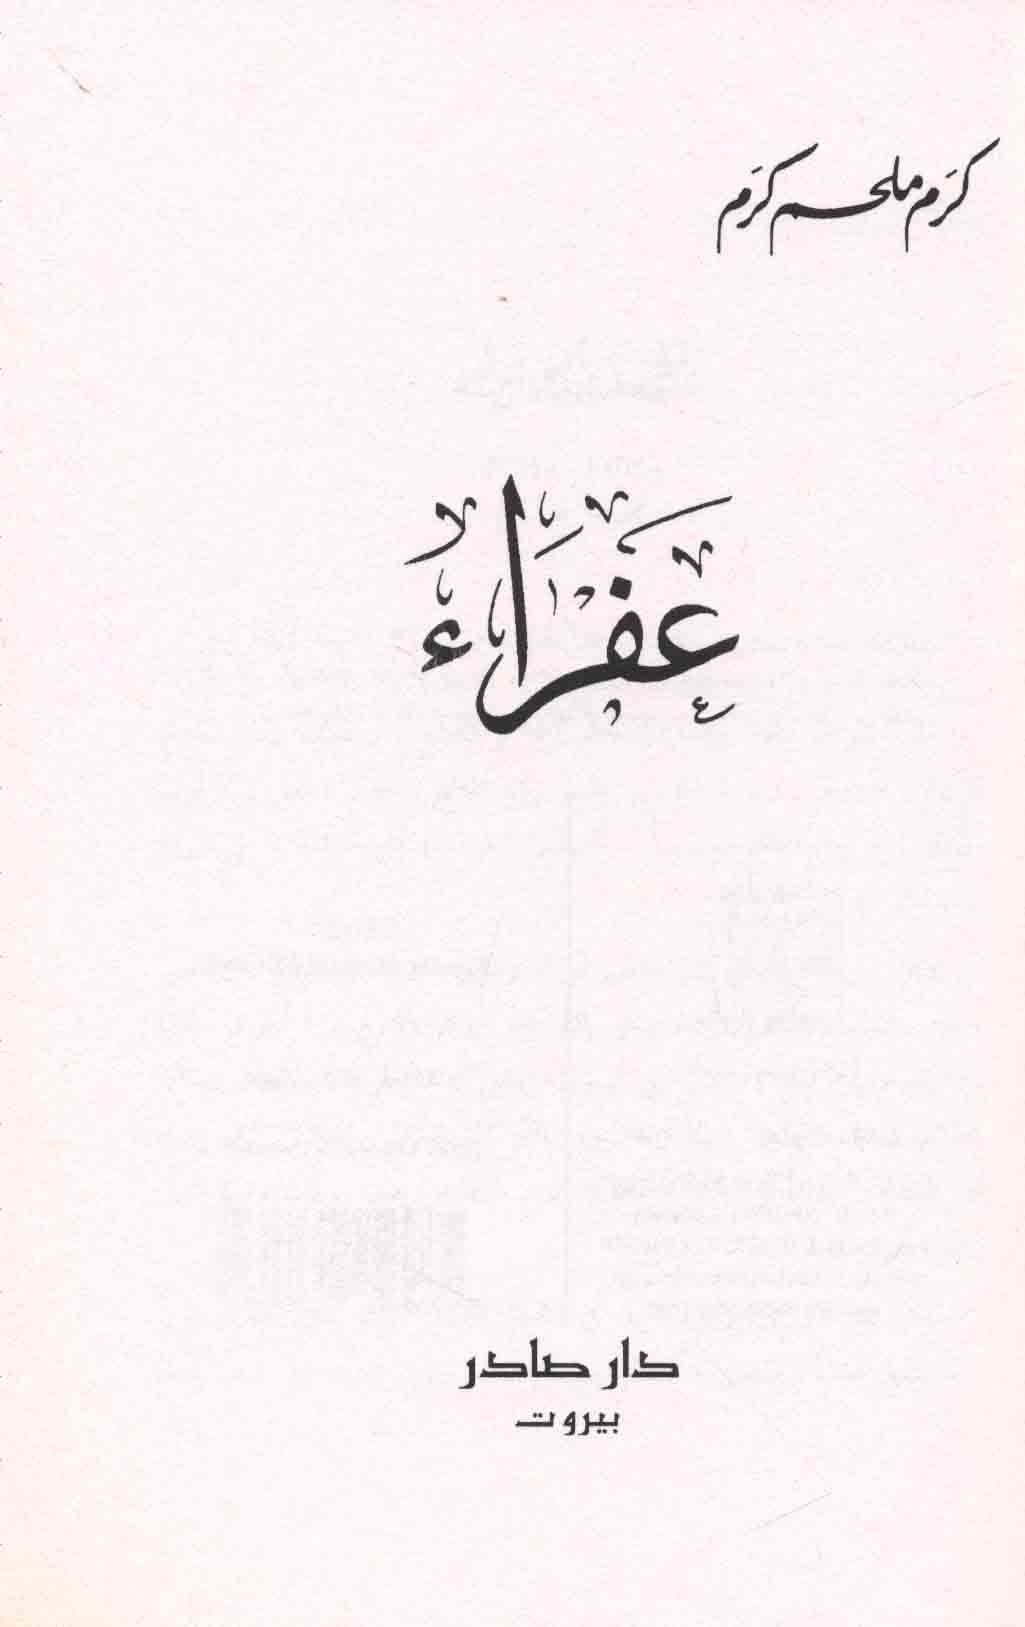 كرَم ملحم كرَم
عَفْرَاء
دار صادر
بيروت